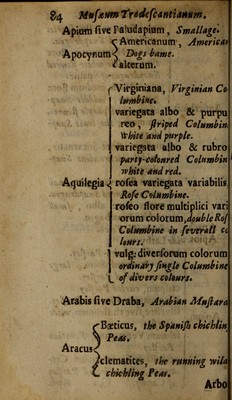 84 Musæum Tradescantianum.
Apium sive Paludapium, Smallage.
Americanum, American
Apocynum Dogs bane.
alterum.
Virginiana, Virginian Co
lumbine.
variegata albo & purpu
reo, striped Columbin
white and purple.
variegata albo & rubro
party-coloured Columbin
white and red.
Aquilegia rosea variegata variabilis
Rose Columbine.
roseo flore multiplici vari
orum colorum, double Ros
Columbine in severall co
lours.
vulg: diversorum colorum
ordinary single Columbine
of divers colours.
Arabis sive Draba, Arabian Mustara
Bæticus, the Spanish chichlin
Peas.
Aracus
clematites, the running wila
chichling Peas.
Arbo